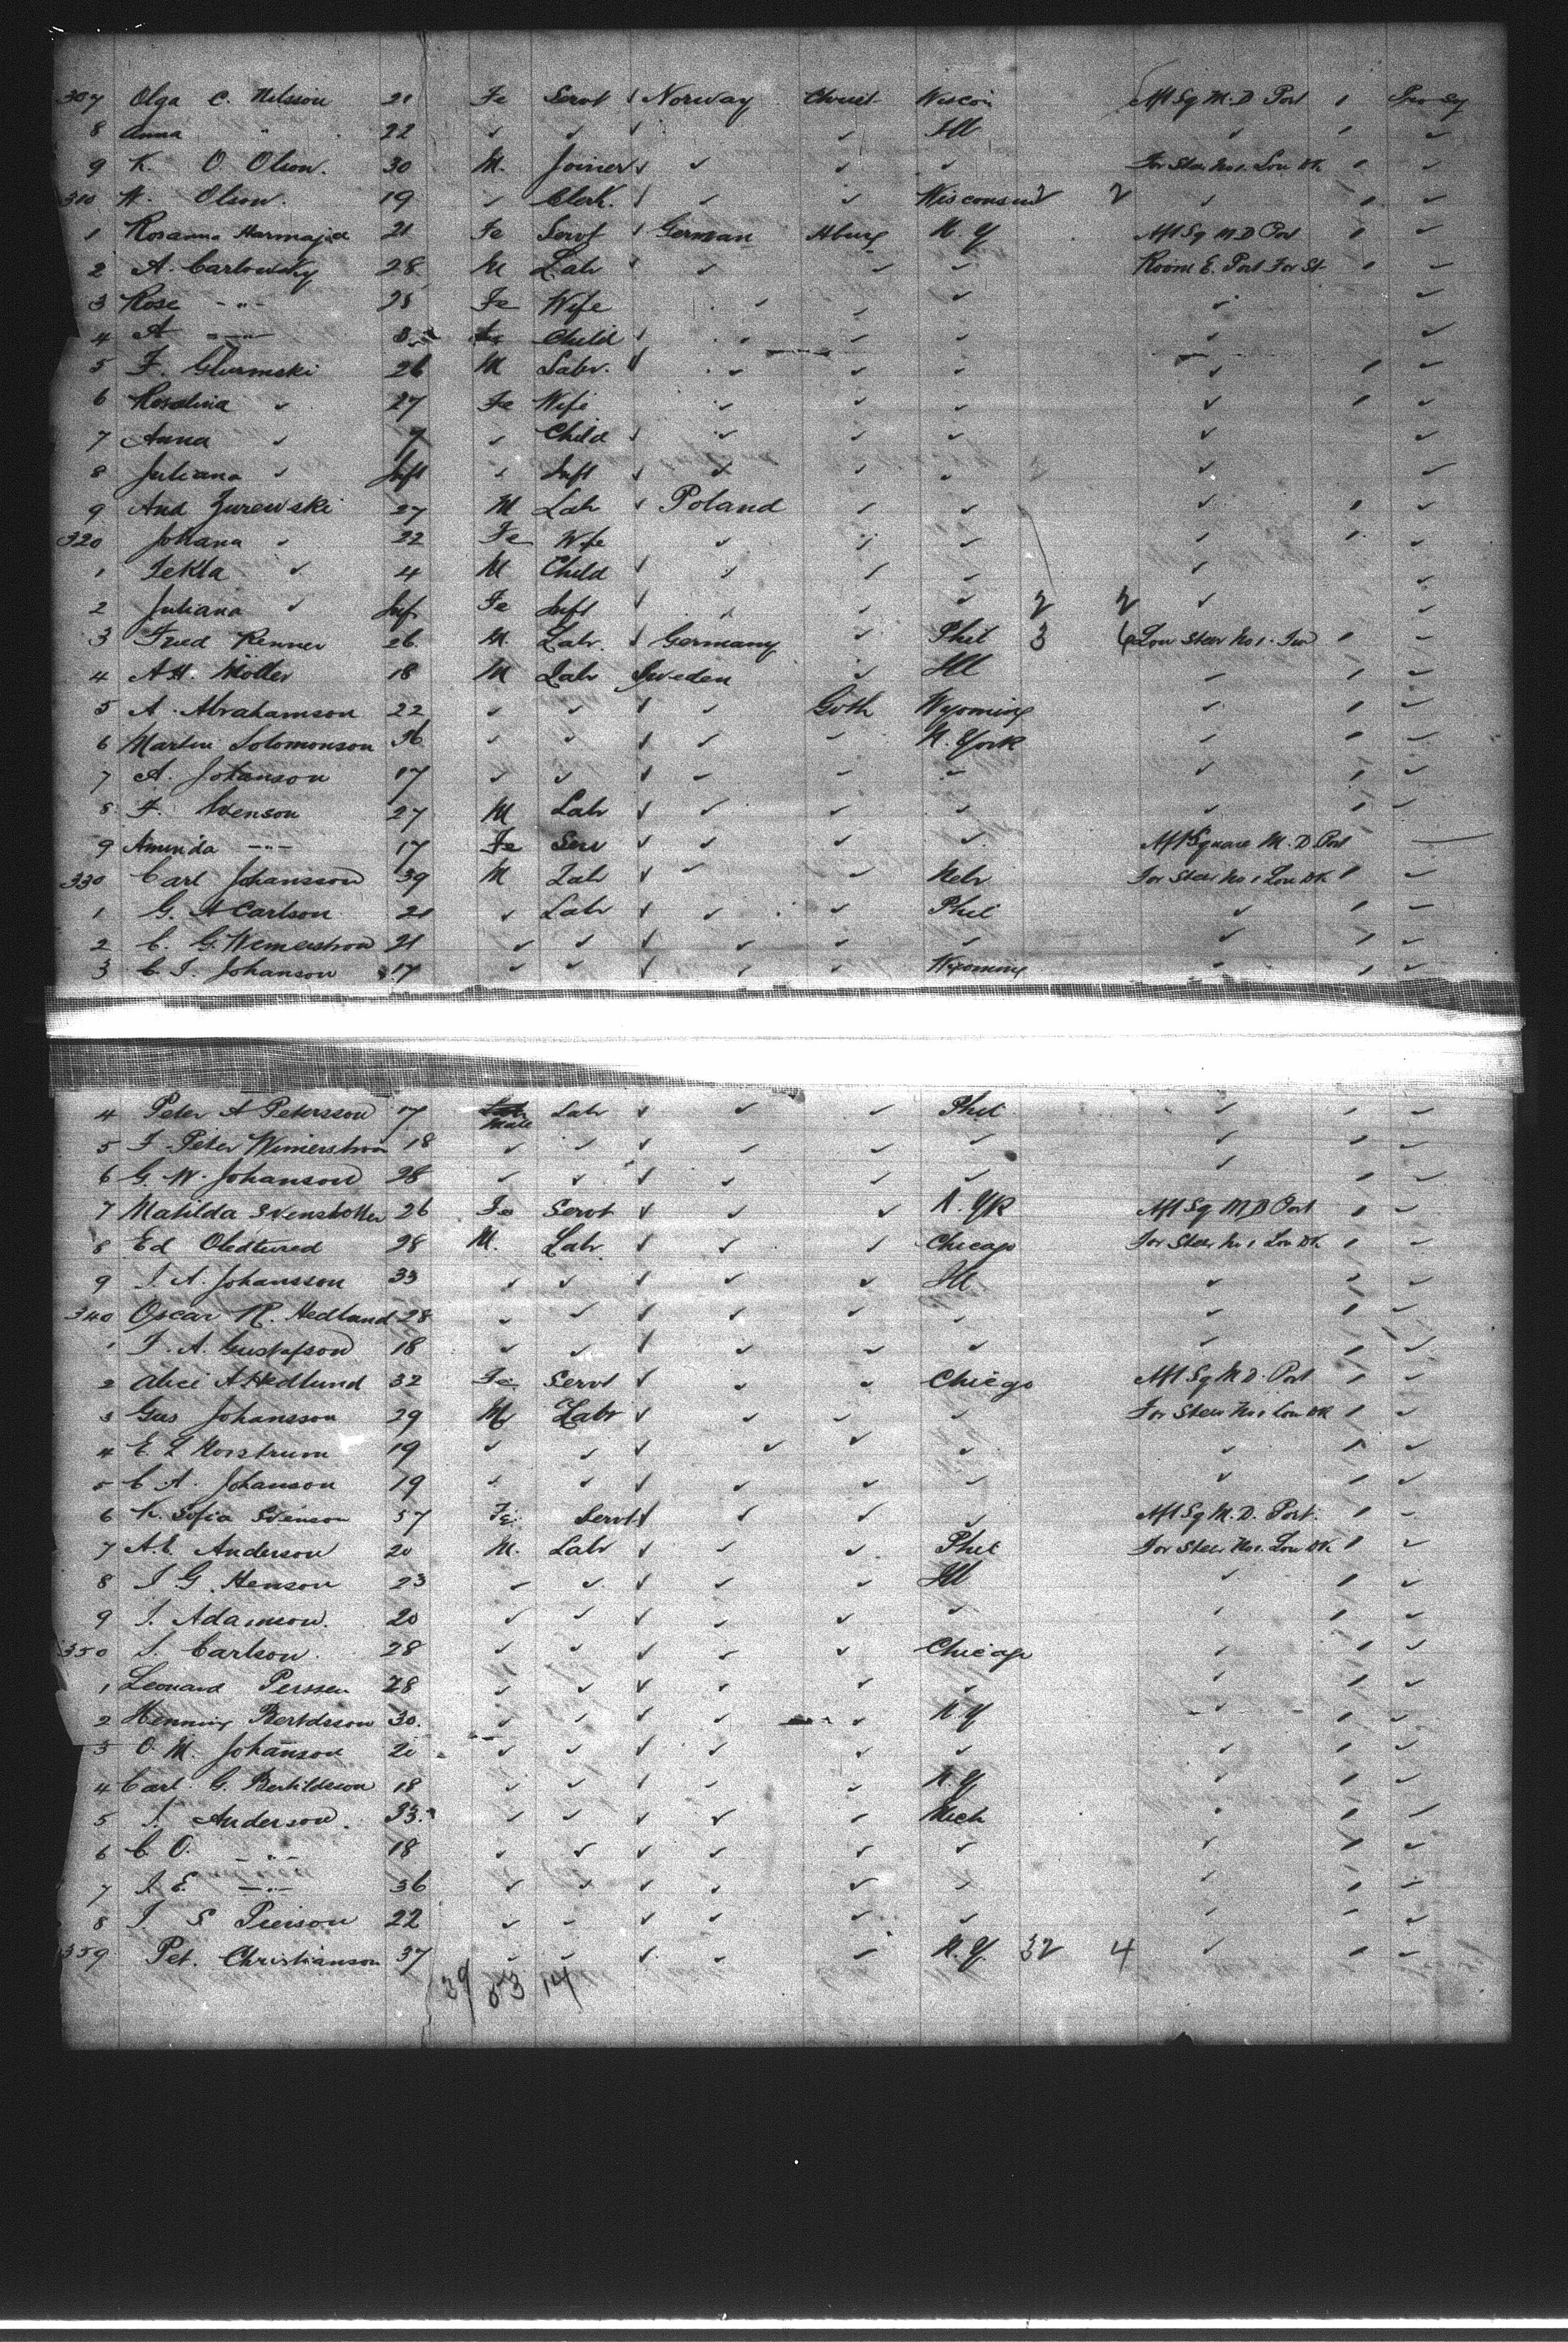 307 Olga C. Nilsson 21 Fe Servt ✓ Norway Christ Wiscon Aft Sq M. D Port 1
8 Anna " 22 ✓ ✓ ✓ ✓ Ill ✓ 1 ✓
9 K. O. Olson. 30 M. Joiner ✓ ✓ ✓ ✓ For Steer No 1. Low Dk 1 ✓
310 N. Olson. 19 ✓ Clerk. ✓ ✓ ✓ Wisconsin 2 2 ✓ 1 ✓
1 Rosanna 21 Fe Servt ✓ German Hburg N. Y Aft Sq M D Port 1 ✓
2 A. Carlowsky 28 M Lab ✓ ✓ ✓ ✓ Room E. Port For St 1 ✓
3 Rose -"- 28 Fe Wife ✓ ✓ ✓ ✓ ✓
4 A -"- Child ✓ ✓ ✓ ✓ ✓ ✓
5 F. Glurmski 26 M Labr. ✓ ✓ ✓ ✓ ✓ 1 ✓
6 Rosalina ✓ 27 Fe Wife ✓ ✓ ✓ ✓ 1 ✓
7 Anna ✓ 7 ✓ Child ✓ ✓ ✓ ✓ ✓ ✓
8 Juliana ✓ Inft ✓ Inft ✓ ✓ ✓ ✓ ✓ ✓
9 And Zurewski 27 M Lab ✓ Poland ✓ ✓ ✓ 1 ✓
320 Johana ✓ 22 Fe Wife ✓ ✓ ✓ ✓ 1 ✓
1 Tekla ✓ 4 M Child ✓ ✓ ✓ ✓ ✓ ✓
2 Juliana ✓ Inf Fe Inft ✓ ✓ ✓ ✓ 2 2 ✓ ✓
3 Fred Renner 26 M Labr. ✓ Germany ✓ Phil 3 6 Low Steer No 1. For 1 ✓
4 A H. Möller 18 M Labr Sweden ✓ Ill ✓ 1 ✓
5 A. Abrahamson 22 ✓ ✓ ✓ ✓ Goth Wyoming ✓ 1 ✓
6 Martin Solomonson 36 ✓ ✓ ✓ ✓ ✓ N. York ✓ 1 ✓
7 A. Johanson 17 ✓ ✓ ✓ ✓ ✓ ✓ ✓ 1 ✓
8 F. Svenson 27 M Lab ✓ ✓ ✓ ✓ ✓ 1 ✓
9 Aminda -"- 17 Fe Serv ✓ ✓ ✓ ✓ Aft Square M. D. Port
330 Carl Johansson 39 M Lab ✓ ✓ ✓ Nebr For Steer No 1 Low Dk 1 ✓
1 G. A Carlson 21 ✓ Lab ✓ ✓ ✓ Phil ✓ 1 ✓
2 C. G. Wemerstrom 21 ✓ ✓ ✓ ✓ ✓ ✓ ✓ 1 ✓
3 C. I. Johanson 17 ✓ ✓ ✓ ✓ ✓ Wyoming ✓ 1 ✓
4 Peter A Petersson 17 Male Lab ✓ ✓ ✓ Phil ✓ 1 ✓
5 F. Peter Wimerstrom 18 ✓ ✓ ✓ ✓ ✓ ✓ ✓ 1 ✓
6 G. W. Johanson 28 ✓ ✓ ✓ ✓ ✓ ✓ ✓ 1 ✓
7 Matilda 26 Fe Servt ✓ ✓ ✓ N. YR Aft Sq M D Port 1 ✓
8 Ed 28 M. Lab ✓ ✓ ✓ Chicago For Steer No 1 Low Dk 1 ✓
9 I. A. Johansson 33 ✓ ✓ ✓ ✓ ✓ Ill ✓ 1 ✓
340 Oscar R. Hedlund 28 ✓ ✓ ✓ ✓ ✓ ✓ ✓ 1 ✓
1 F. A. Gustafson 18 ✓ ✓ ✓ ✓ ✓ ✓ ✓ 1 ✓
2 Alice A Hedlund 32 Fe Servt ✓ ✓ ✓ Chicago Aft Sq M. D. Port 1 ✓
3 Gus Johansson 29 M Labr ✓ ✓ ✓ ✓ For Steer No 1 Low Dk 1 ✓
4 E. L Norstrum 19 ✓ ✓ ✓ ✓ ✓ ✓ ✓ 1 ✓
5 C. A. Johanson 19 ✓ ✓ ✓ ✓ ✓ ✓ ✓ 1 ✓
6 K. Sofia Svenson 57 Fe. Servt ✓ ✓ ✓ ✓ Aft Sq M. D. Port. 1 ✓
7 A. E. Anderson 20 M. Labr ✓ ✓ ✓ Phil For Steer No 1. Low Dk 1 ✓
8 I. G. Henson 23 ✓ ✓ ✓ ✓ ✓ Ill ✓ 1 ✓
9 I. Adamson. 20 ✓ ✓ ✓ ✓ ✓ ✓ ✓ 1 ✓
350 I. Carlson. 28 ✓ ✓ ✓ ✓ ✓ Chicago ✓ 1 ✓
1 Leonard Perssen 28 ✓ ✓ ✓ ✓ ✓ ✓ ✓ 1 ✓
2 Henning 30. ✓ ✓ ✓ ✓ ✓ N. Y ✓ 1 ✓
3 O. M. Johanson 20 ✓ ✓ ✓ ✓ ✓ ✓ ✓ 1 ✓
4 Carl. G. Bertildsson 18 ✓ ✓ ✓ ✓ ✓ N. Y ✓ 1 ✓
5 I. Anderson. 33. ✓ ✓ ✓ ✓ ✓ Mich ✓ 1 ✓
6 C. O. -"- 18 ✓ ✓ ✓ ✓ ✓ ✓ ✓ 1 ✓
7 I. E. -"- 36 ✓ ✓ ✓ ✓ ✓ ✓ ✓ 1 ✓
8 I. S Pierson 22 ✓ ✓ ✓ ✓ ✓ ✓ ✓ 1 ✓
359 Pet. Christianson 37 ✓ ✓ ✓ ✓ ✓ N. Y. 32 4 ✓ 1 ✓
39 53 14